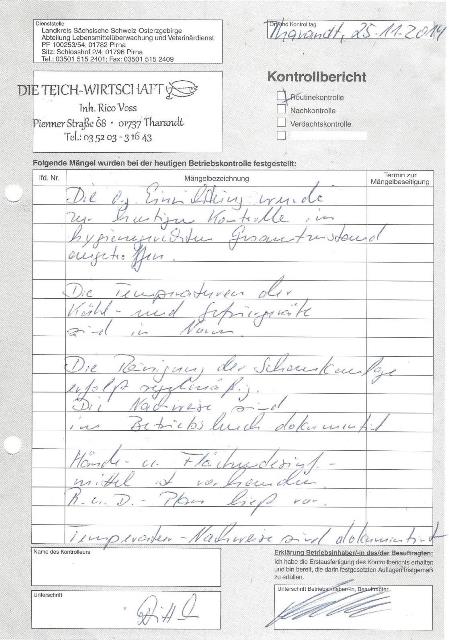 Dienststelle
Landkreis Sächsische Schweiz Osterzgebirge
Abteilung Lebensmittelüberwachung und Veterinärdienst
PF 100253/54, 01782 Pirna
Sitz: Schlosshof 2/4 01796 Pirna
Tel.: 03501 515 2401; Fax: 03501 515 2409
Ort und Kontrolltag
Tharandt, 25.11.2014
DIE TEICH-WIRTSCHAFT
Inh. Rico Voss
Pienner Straße 68 · 01737 Tharandt
Tel.: 03 52 03 - 3 16 43
Kontrollbericht
Routinekontrolle
Nachkontrolle
Verdachtskontrolle
Folgende Mängel wurden bei der heutigen Betriebskontrolle festgestellt:
lfd. Nr.
Mängelbezeichnung
Termin zur
Mängelbeseitigung
Die o.g. Einrichtung wurde
zur heutigen Kontrolle im
hygienegerechten Gesamtzustand
angetroffen.
Die Temperaturen der
Kühl- und Gefriergeräte
sind in Norm.
Die Reinigung der Schankanlage
erfolgt regelmäßig.
Die Nachweise sind
im Betriebsbuch dokumentiert
Hände- u. Flächendesinf.-
mittel ist vorhanden.
R.- u. D.- Plan liegt vor.
Temperatur-Nachweise sind dokumentiert
Name des Kontrolleurs
Unterschrift
Erklärung Betriebsinhaber/-in/das/der Beauftragten:
Ich habe die Erstausfertigung des Kontrollberichts erhalten
und bin bereit, die darin festgesetzten Auflagen fristgemäß
zu erfüllen.
Unterschrift Betriebsinhaber/-in, Beauftragter